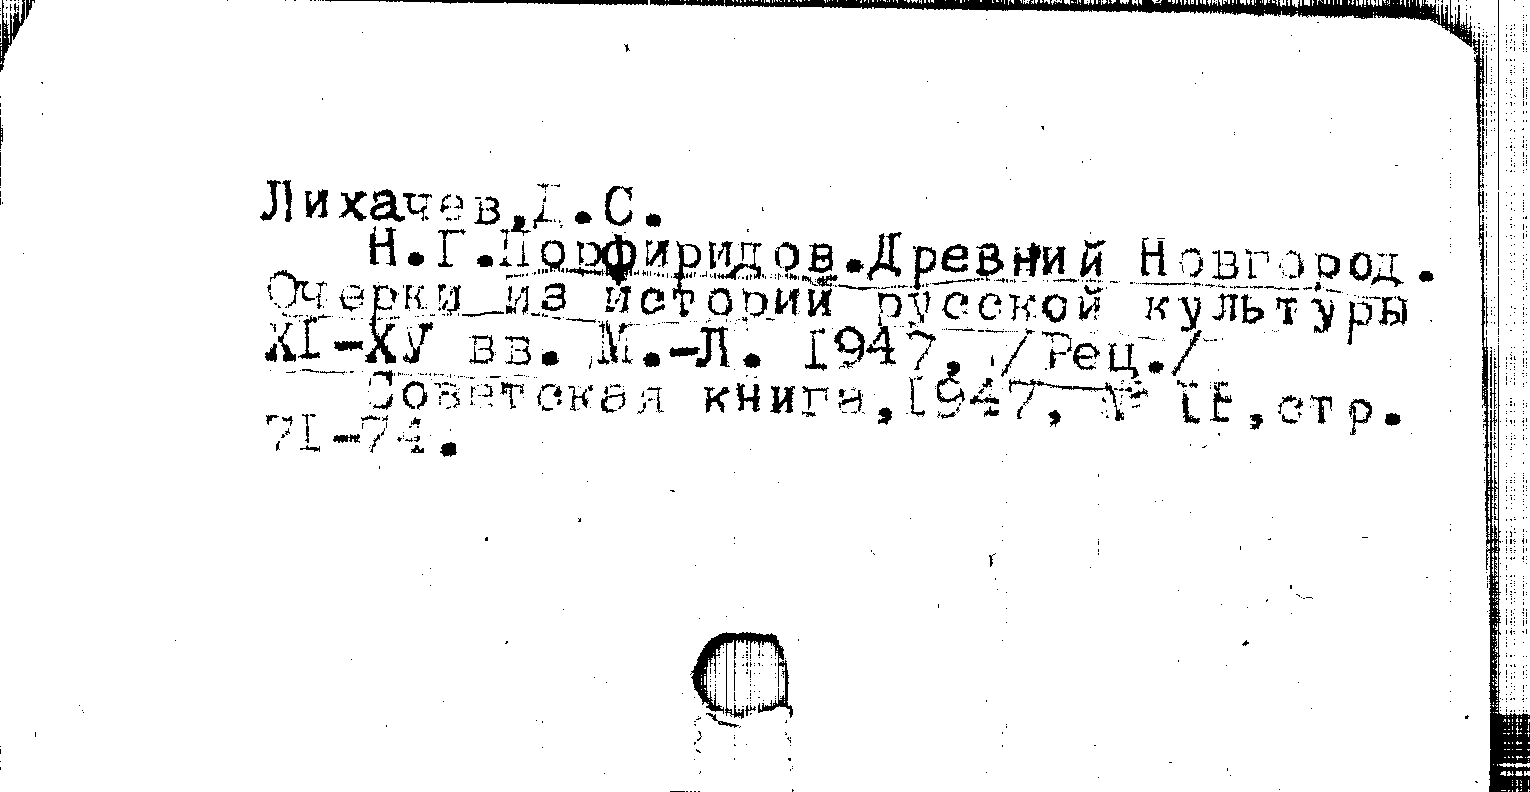 Лихачев,Д.С.
Н.Г.Порфиридов.Древний Новгород.
Очерки из истории русской культуры
XI-ХУ вв. М.-Л. I947. /Рец./
Советская книга,I947, № ,стр.
7I-74.